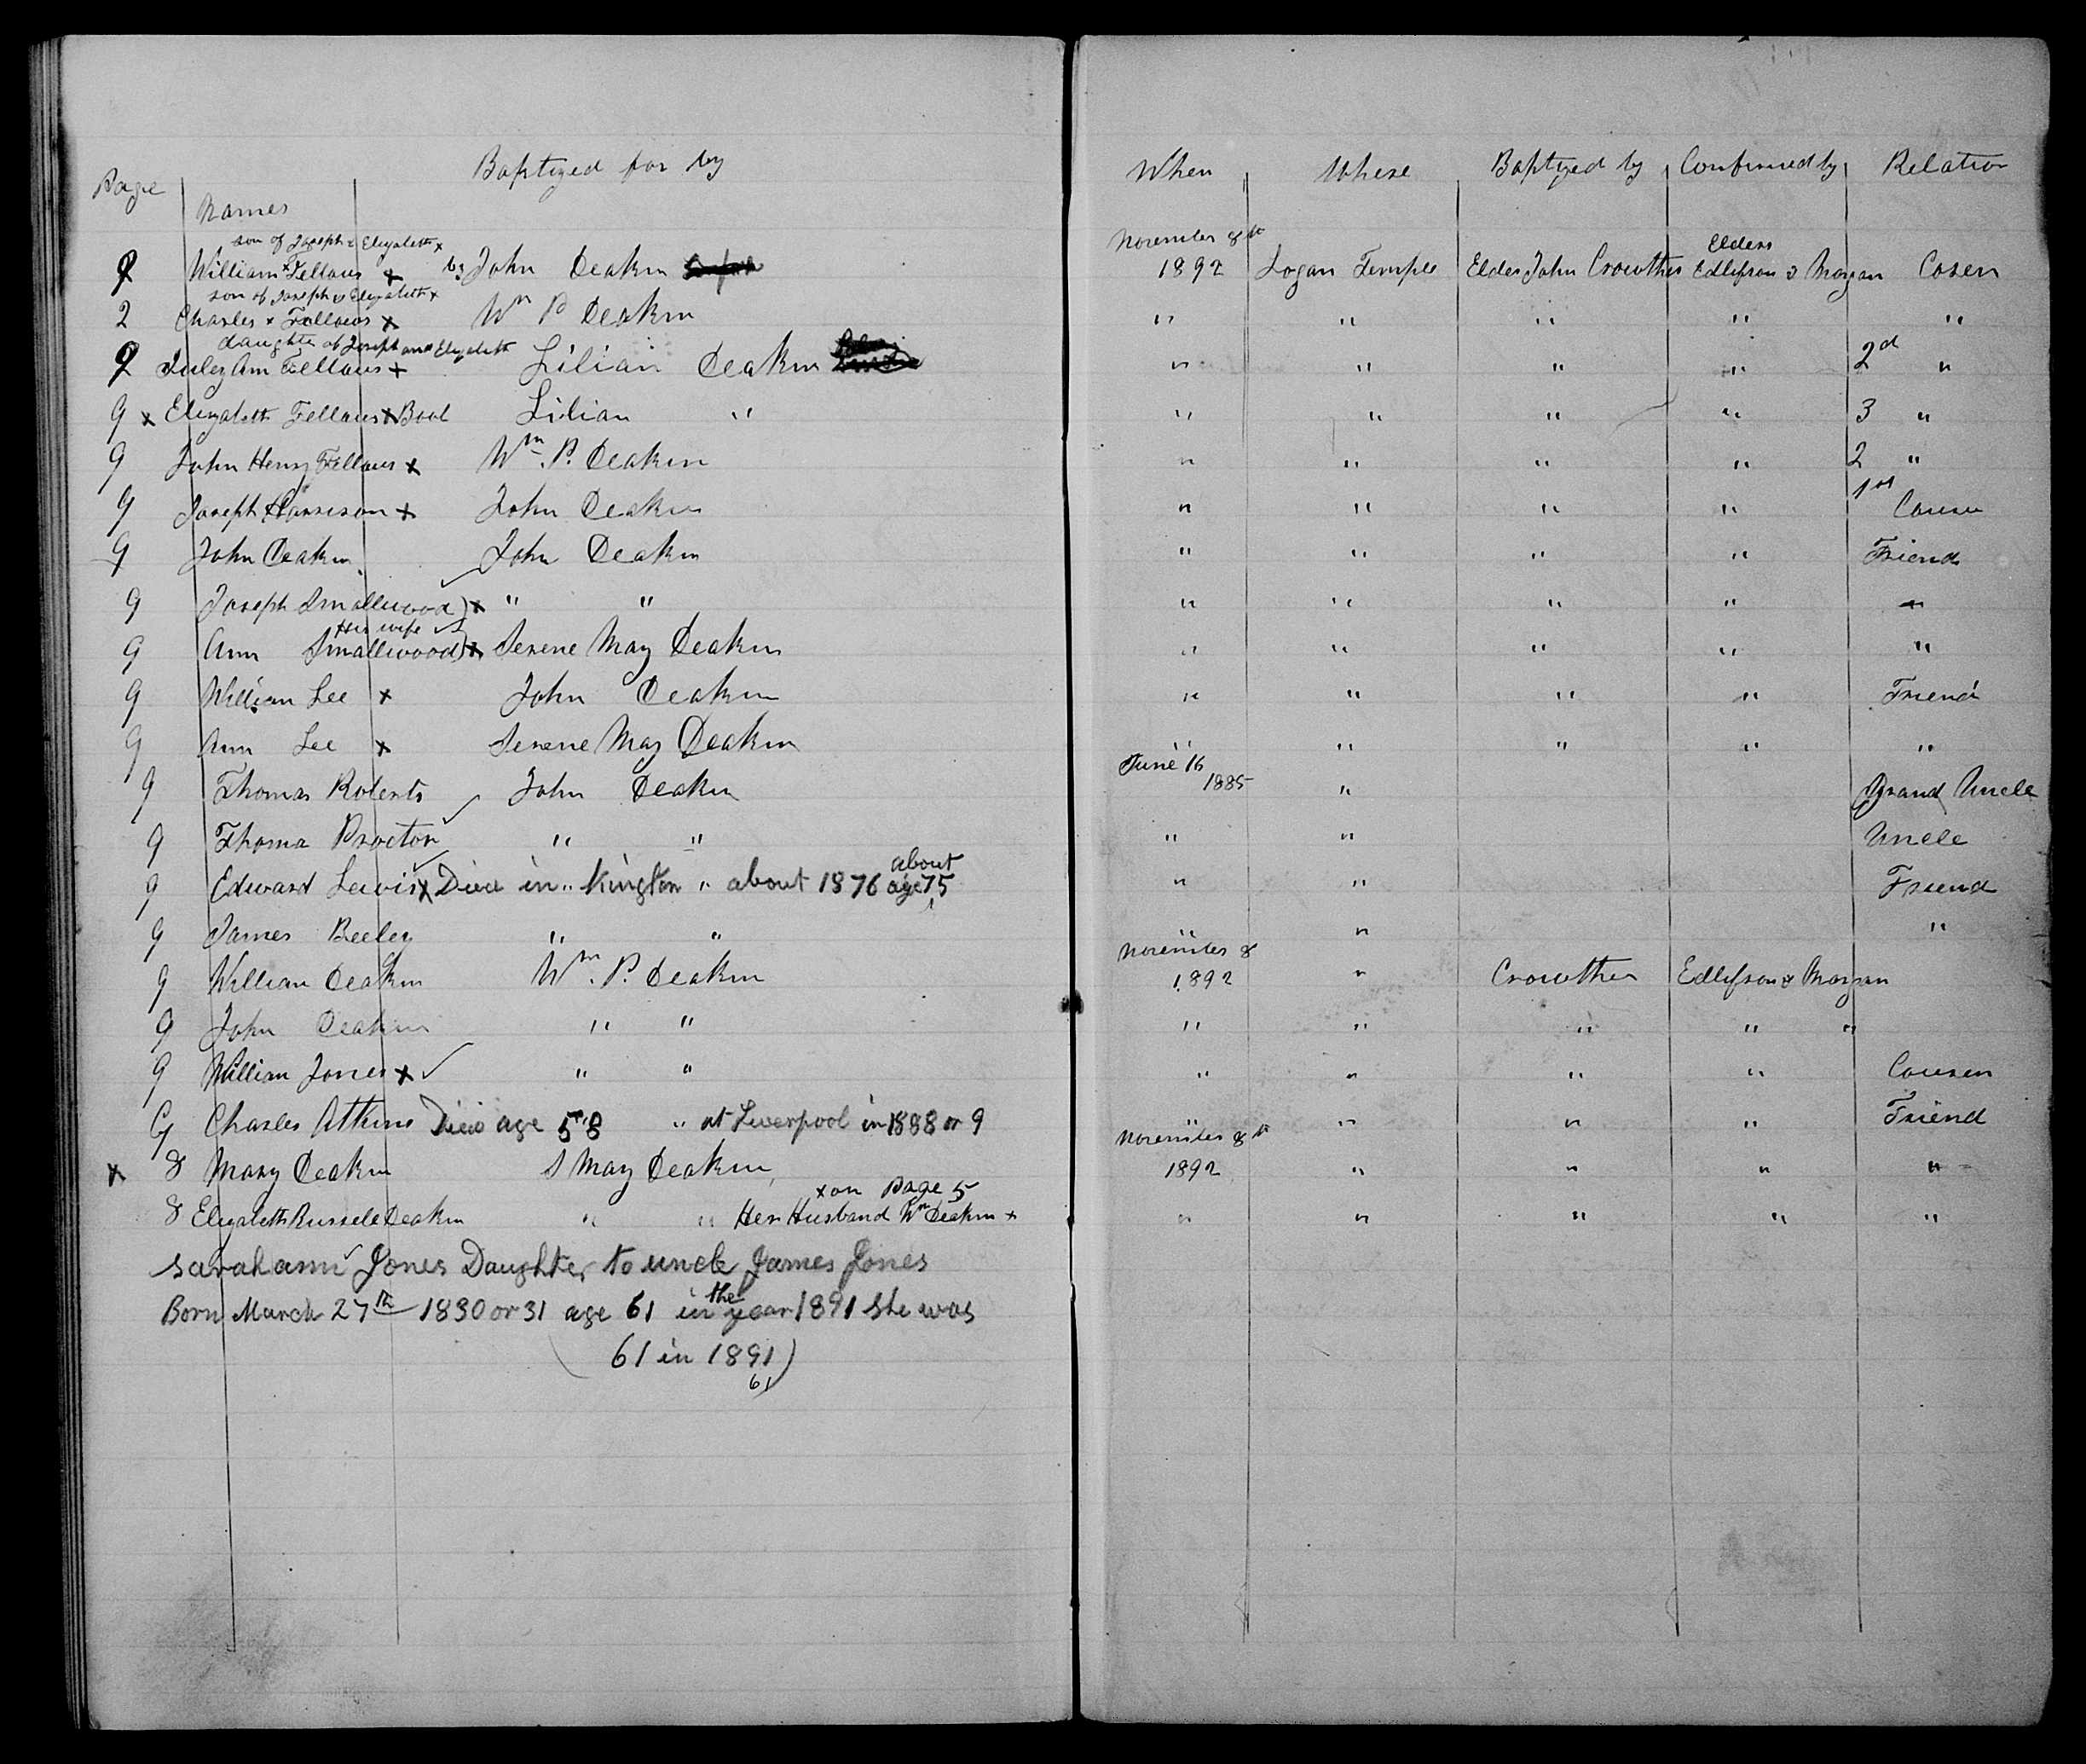 Baptized for by
Page
Names
son of Joseph & Elizabeth x
9 William x Fellows x by John Deakin
son of Joseph & Elizabeth x
2 Charles x Fellows x Wm P Deakin
daughter of Joseph and Elizabeth
9 Juley Ann Fellows x Lilian Deakin
9 x Elizabeth Fellows x Bool Lilian "
9 John Henry Fellows x Wm. P. Deakin
9 Joseph Harrison x John Deakin
9 John Deakin John Deakin
9 Joseph Smallwood) x " "
His wife
9 Ann Smallwood) x Serene May Deakin
9 William Lee x John Deakin
9 Ann Lee x Serene May Deakin
9 Thomas Roberts John Deakin
9 Thoma Proctor " "
about
9 Edward Lewis x Died in " Kington " about 1876 age 75
9 James Beeley " "
9 William Deakin Wm. P. Deakin
9 John Deakin " "
9 William Jones x ✓ " "
9 Charles Atkins Died age 58 " at Liverpool in 1888 or 9
x 8 Mary Deakin S May Deakin
x on Page 5
8 Elizabeth Russele Deakin " " Her Husband Wm Deakin x
Sarahann ✓ Jones Daughter to uncle James Jones
the
Born March 27th 1830 or 31 age 61 in year 1891 She was
(61 in 1891)
61
When Where Baptized by Confirmed by Relation
November 8th Elders
1892 Logan Temple Elder John Crowther Edlefson & Morgan Cosen
" " " " "
" " " " 2d "
" " " " 3 "
" " " " 2 "
" " " " 1st Cousen
" " " " Friend
" " " " "
" " " " "
" " " " Friend
" " " " "
June 16
1885 " Grand Uncle
" " Uncle
" " Friend
" " "
November 8
1892 " Crowther Edlefson & Morgan
" " " " "
" " " " Cousen
" " " " Friend
November 8th
1892 " " " "
" " " " "